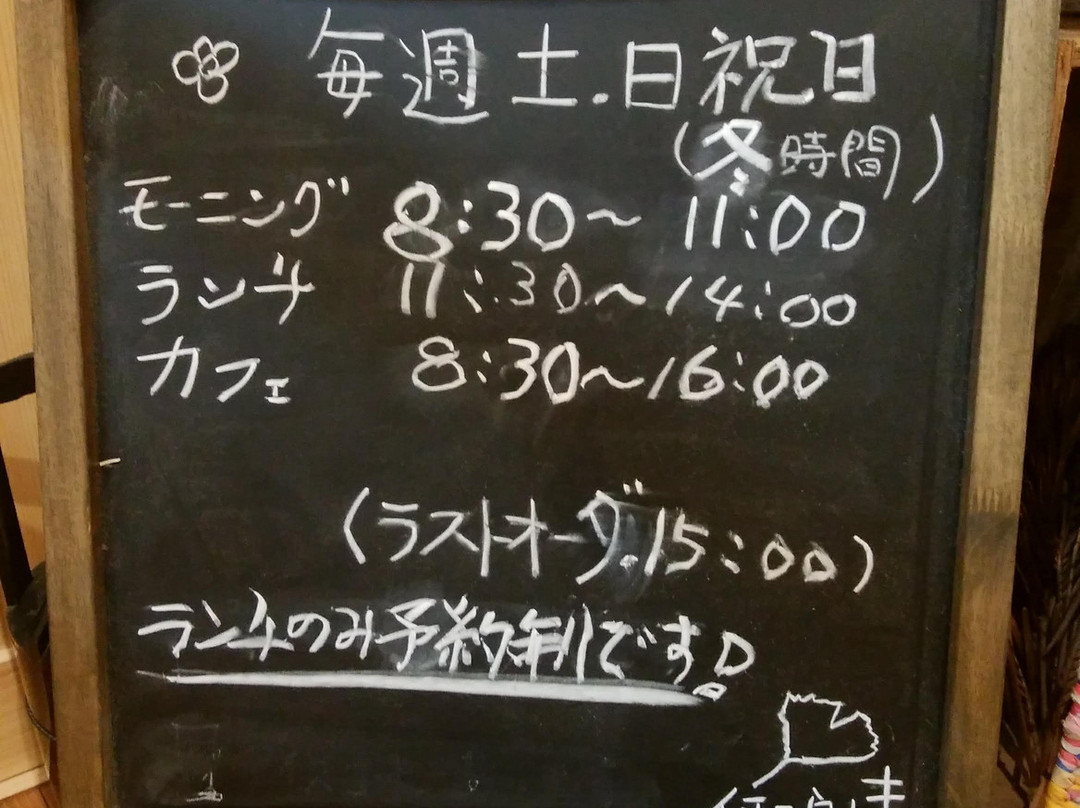 毎週土.日祝日
(冬時間)
モーニング 8:30〜11:00
ランチ 11:30〜14:00
カフェ 8:30〜16:00
(ラストオーダ.15:00)
ランチのみ予約制です!